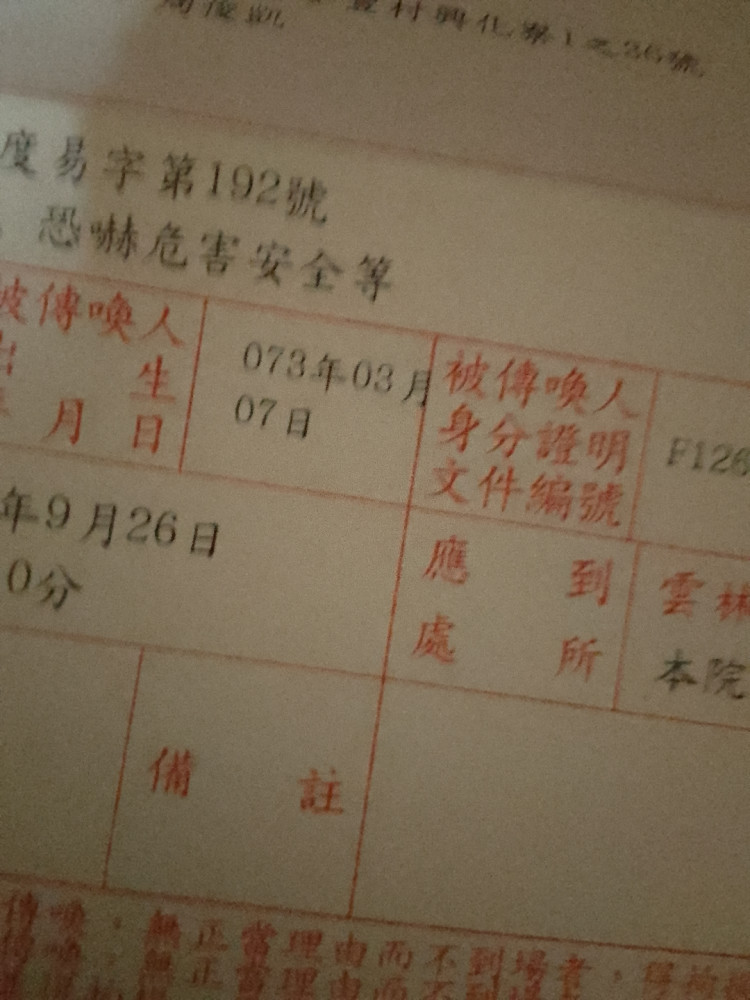 豐村興化寮1之36號
周俊凱
度易字第192號
恐嚇危害安全等
被傳喚人
出 生
年 月 日
073年03月
07日
被傳喚人
身分證明
文件編號
F126
年9月26日
0分
應 到
處 所
雲林
本院
備 註
傳喚,無正當理由而不到場者,得拘提
傳喚,無正當理由而不到場